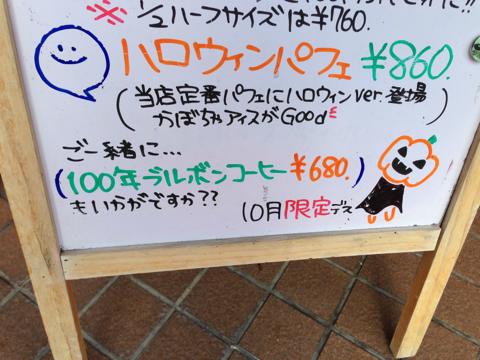 ※ 1/2ハーフサイズは¥760.
ハロウィンパフェ ¥860.
(当店定番パフェにハロウィンver.登場
かぼちゃアイスがGood)
ご一緒に...
(100年ブルボンコーヒー¥680.)
もいかがですか??
10月限定デス